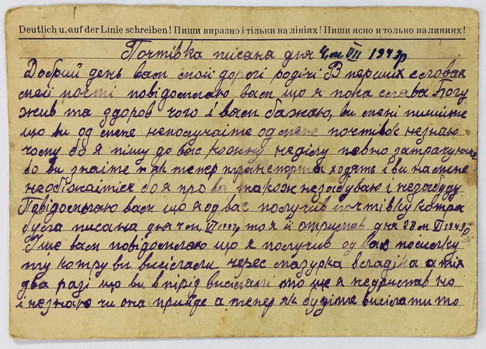 Deutlich u. auf der Linie schreiben! Пиши виразно і тільки на лініях! Пиши ясно и только на линиях!
Почтівка писана дня 4.м VII 1943р
Добрий день вам мої дорогі родічі В перших словах
моєї почті повідомляю вас що я пока слава Богу
жив та здоров чого і вам бажаю, ви мені пишите
що ви од мене неполучаїте од мене почтівок незнаю
чому бо я пішу до вас кожну неділу певно затрачуюця
бо ви знаїте як тепер транспорта ходять і ви на мене
необіжайтіся бо я про вас також незабуваю і незабуду.
Повідомляю вам що я од вас получив почтівку котра
була писана дня VI то я її отримав дня 28 м VI 1943р
Іще вам повідомляю що я получив од вас посилку
ту котру ви висилали через мазурка владіка а тих
два разі що ви впірід висилалі то ще я неотримав но
і незнаю чи она прийде а тепер як будіте висілати то